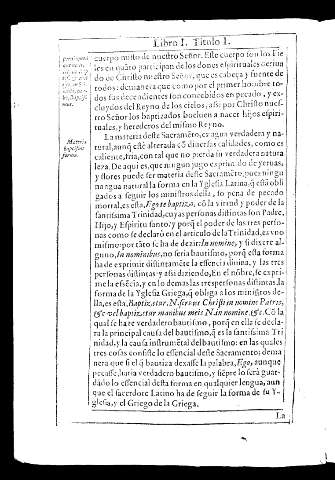 Libro I. Titulo I.
cuerpo misto de nuestro Señor. Este cuerpo son los fie
les en quãto participan de los dones espirituales deriua
do de Christo nuestro Señor, que es cabeça y fuente de
todos: demanera que como por el primer hombre to-
dos sus decendientes son concebidos en pecado, y ex-
cluydos del Reyno de los cielos, assi por Christo nues-
tro Señor los baptizados bueluen a nacer hijos espiri-
tuales, y herederos del mismo Reyno.
Materia
baptismi
forma.
La materia deste Sacramẽto, es agua verdadera y na-
tural, aunq̃ esté alterada cõ diuersas calidades, como es
caliente, fria, con tal que no pierda su verdadera natura
leza. De aqui es, que ningun jugo exprimido de yeruas,
y flores puede ser materia deste Sacramẽto; pues ningu
na agua natural la forma en la Yglesia Latina, q̃ estã obli
gados a seguir los ministros della, so pena de pecado
mortal, es esta, Ego te baptizo, cõ la virtud y poder de la
santissima Trinidad, cuyas personas distintas son Padre,
Hijo, y Espiritu santo; y porq̃ el poder de las tres perso-
nas como se declarò en el articulo de la Trinidad, es vno
mismo: por tãto se ha de dezir: In nomine, y si dixere al-
guno, In nominibus, no seria bautismo, porq̃ esta forma
ha de exprimir distintamẽte la essencia diuina, y las tres
personas distintas y assi diziendo, En el nõbre, se expri-
me la esẽcia, y en lo demas las tres personas distintas, la
forma de la Yglesia Griega, q̃ obliga a los ministros de-
lla, es esta, Baptizetur N. seruus Christi in nomine Patris,
&c. vel baptizatur manibus meis N. in nomine, &c. Cõ la
qual se haze verdadero bautismo, porq̃ en ella se decla-
ra la principal causa del bautismo, q̃ es la santissima Tri
nidad, y la causa instrumẽtal del bautismo: en las quales
tres cosas consiste lo essencial deste Sacramento: dema
nera que si el q̃ bautiza dexasse la palabra, Ego, aunque
pecasse, haria verdadero bautismo, y siẽpre lo serà guar-
dado lo essencial desta forma en qualquier lengua, aun
que el sacerdote Latino ha de seguir la forma de su Y-
glesia, y el Griego de la Griega.
La